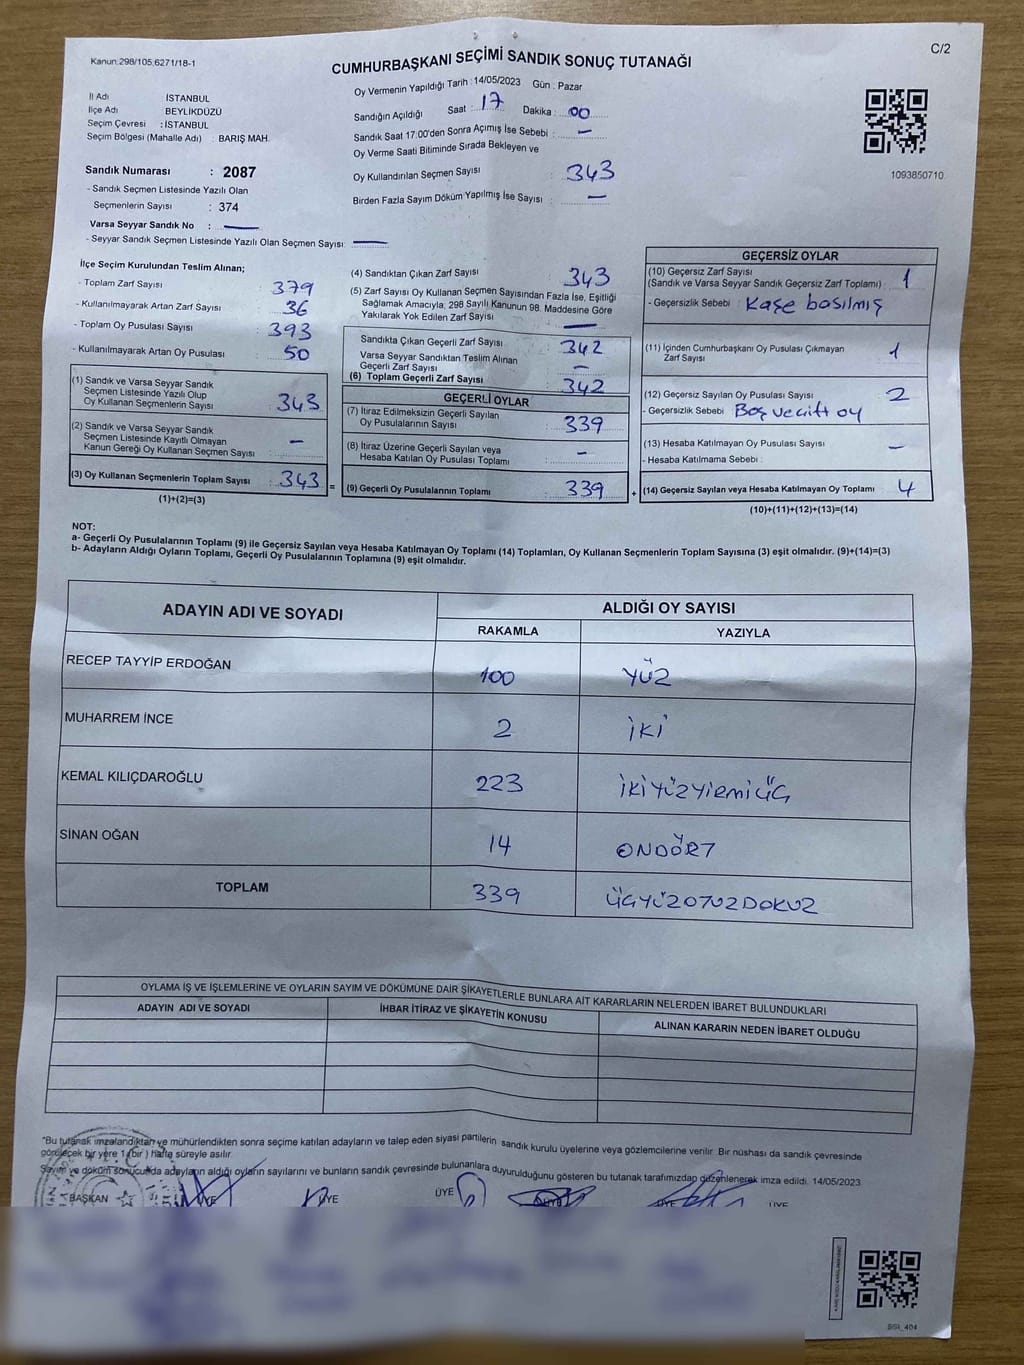 Kanun:298/105,6271/18-1
C/2
CUMHURBAŞKANI SEÇİMİ SANDIK SONUÇ TUTANAĞI
Oy Vermenin Yapıldığı Tarih : 14/05/2023 Gün : Pazar
İl Adı İSTANBUL
İlçe Adı BEYLİKDÜZÜ
Seçim Çevresi : İSTANBUL
Seçim Bölgesi (Mahalle Adı) : BARIŞ MAH.
Sandığın Açıldığı Saat : 17 Dakika : 00
Sandık Saat 17:00'den Sonra Açımış İse Sebebi : —
Oy Verme Saati Bitiminde Sırada Bekleyen ve
Oy Kullandırılan Seçmen Sayısı : 343
Birden Fazla Sayım Döküm Yapılmış İse Sayısı : —
1093850710
Sandık Numarası : 2087
- Sandık Seçmen Listesinde Yazılı Olan
Seçmenlerin Sayısı : 374
Varsa Seyyar Sandık No : —
- Seyyar Sandık Seçmen Listesinde Yazılı Olan Seçmen Sayısı: —
İlçe Seçim Kurulundan Teslim Alınan;
- Toplam Zarf Sayısı : 379
- Kullanılmayarak Artan Zarf Sayısı : 36
- Toplam Oy Pusulası Sayısı : 393
- Kullanılmayarak Artan Oy Pusulası : 50
(1) Sandık ve Varsa Seyyar Sandık
Seçmen Listesinde Yazılı Olup
Oy Kullanan Seçmenlerin Sayısı : 343
(2) Sandık ve Varsa Seyyar Sandık
Seçmen Listesinde Kayıtlı Olmayan
Kanun Gereği Oy Kullanan Seçmen Sayısı : —
(3) Oy Kullanan Seçmenlerin Toplam Sayısı : 343 =
(1)+(2)=(3)
(4) Sandıktan Çıkan Zarf Sayısı : 343
(5) Zarf Sayısı Oy Kullanan Seçmen Sayısından Fazla İse, Eşitliği
Sağlamak Amacıyla; 298 Sayılı Kanunun 98. Maddesine Göre
Yakılarak Yok Edilen Zarf Sayısı —
Sandıkta Çıkan Geçerli Zarf Sayısı : 342
Varsa Seyyar Sandıktan Teslim Alınan
Geçerli Zarf Sayısı : —
(6) Toplam Geçerli Zarf Sayısı : 342
GEÇERLİ OYLAR
(7) İtiraz Edilmeksizin Geçerli Sayılan
Oy Pusulalarının Sayısı : 339
(8) İtiraz Üzerine Geçerli Sayılan veya
Hesaba Katılan Oy Pusulası Toplamı : —
(9) Geçerli Oy Pusulalarının Toplamı : 339 +
GEÇERSİZ OYLAR
(10) Geçersiz Zarf Sayısı
(Sandık ve Varsa Seyyar Sandık Geçersiz Zarf Toplamı) : 1
- Geçersizlik Sebebi : Kaşe basılmış
(11) İçinden Cumhurbaşkanı Oy Pusulası Çıkmayan
Zarf Sayısı : 1
(12) Geçersiz Sayılan Oy Pusulası Sayısı : 2
- Geçersizlik Sebebi : Boş ve çift oy
(13) Hesaba Katılmayan Oy Pusulası Sayısı : —
- Hesaba Katılmama Sebebi :
(14) Geçersiz Sayılan veya Hesaba Katılmayan Oy Toplamı : 4
(10)+(11)+(12)+(13)=(14)
NOT:
a- Geçerli Oy Pusulalarının Toplamı (9) ile Geçersiz Sayılan veya Hesaba Katılmayan Oy Toplamı (14) Toplamları, Oy Kullanan Seçmenlerin Toplam Sayısına (3) eşit olmalıdır. (9)+(14)=(3)
b- Adayların Aldığı Oyların Toplamı, Geçerli Oy Pusulalarının Toplamına (9) eşit olmalıdır.
ADAYIN ADI VE SOYADI ALDIĞI OY SAYISI
RAKAMLA YAZIYLA
RECEP TAYYİP ERDOĞAN 100 YÜZ
MUHARREM İNCE 2 İKİ
KEMAL KILIÇDAROĞLU 223 İKİYÜZYİRMİÜÇ
SİNAN OĞAN 14 ONDÖRT
TOPLAM 339 ÜÇYÜZOTUZDOKUZ
OYLAMA İŞ VE İŞLEMLERİNE VE OYLARIN SAYIM VE DÖKÜMÜNE DAİR ŞİKAYETLERLE BUNLARA AİT KARARLARIN NELERDEN İBARET BULUNDUKLARI
ADAYIN ADI VE SOYADI İHBAR İTİRAZ VE ŞİKAYETİN KONUSU ALINAN KARARIN NEDEN İBARET OLDUĞU
"Bu tutanak imzalandıktan ve mühürlendikten sonra seçime katılan adayların ve talep eden siyasi partilerin, sandık kurulu üyelerine veya gözlemcilerine verilir. Bir nüshası da sandık çevresinde
görülecek bir yere 1 (bir ) hafta süreyle asılır.
Sayım ve döküm sonucunda adayların aldığı oyların sayılarını ve bunların sandık çevresinde bulunanlara duyurulduğunu gösteren bu tutanak tarafımızdan düzenlenerek imza edildi. 14/05/2023
BAŞKAN ÜYE ÜYE ÜYE ÜYE ÜYE ÜYE
SSI_404